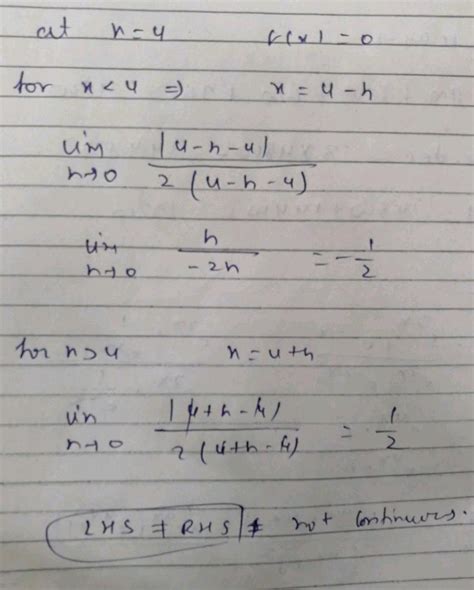 at x = 4 f(x) = 0
for x < 4 ⇒ x = 4 - h
lim h→0 |4-h-4| / 2(4-h-4)
lim h→0 h / -2h = -1/2
for x > 4 x = 4+h
lim h→0 |4+h-4| / 2(4+h-4) = 1/2
LHS ≠ RHS not continuous.